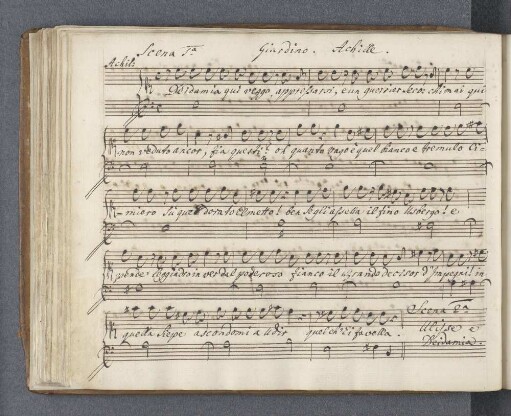 Scena 1.ª Giardino. Achille.
Achil:
Deidamia qui veggo appressarsi, e un guerrier seco, chi mai qui
non veduto ancor, fia questi? oh quanto vago è quel bianco e tremulo Ci-
-miero Su quel dorato elmetto! ben se gli assetta il fino Usbergo! e
pende leggiadro in ver dal poderoso fianco il brando
questa siepe ascondomi a udir quel ch'ei favella.
Scena 2.ª
Ulisse e
Deidamia.